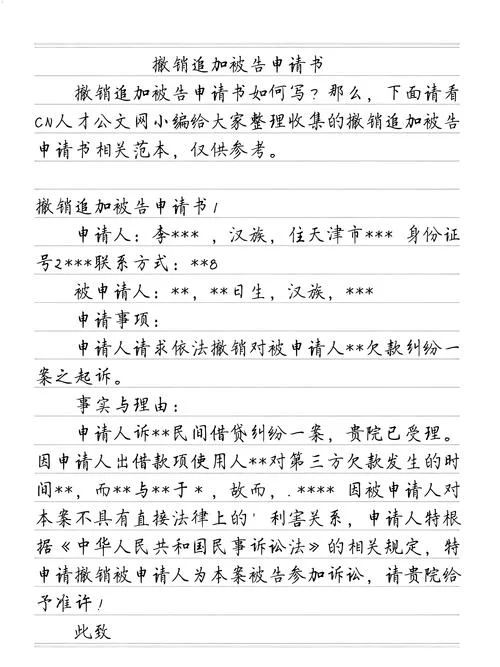 撤销追加被告申请书
撤销追加被告申请书如何写？那么，下面请看
CN人才公文网小编给大家整理收集的撤销追加被告
申请书相关范本，仅供参考。
撤销追加被告申请书1
申请人：李*** ，汉族，住天津市*** 身份证
号2***联系方式：**8
被申请人：**，**日生，汉族，***
申请事项：
申请人请求依法撤销对被申请人**欠款纠纷一
案之起诉。
事实与理由：
申请人诉**民间借贷纠纷一案，贵院已受理。
因申请人出借款项使用人**对第三方欠款发生的时
间**，而**与**于*，故而，.**** 因被申请人对
本案不具有直接法律上的' 利害关系，申请人特根
据《中华人民共和国民事诉讼法》的相关规定，特
申请撤销被申请人为本案被告参加诉讼，请贵院给
予准许！
此致